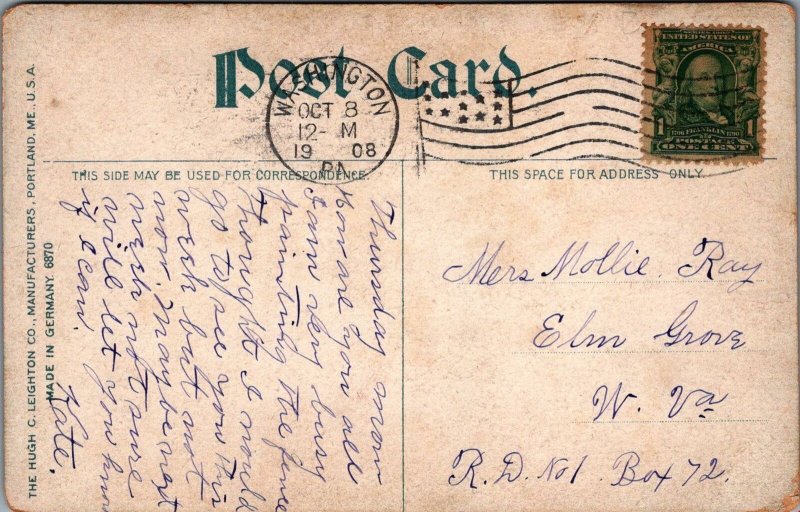 Post Card.
WASHINGTON
OCT 8
12- M
19 08
PA.
SERIES 1902
UNITED STATES OF
AMERICA
1 1706 FRANKLIN 1790 1
POSTAGE
ONE CENT
THIS SIDE MAY BE USED FOR CORRESPONDENCE.
THIS SPACE FOR ADDRESS ONLY.
THE HUGH C. LEIGHTON CO., MANUFACTURERS, PORTLAND, ME. U.S.A.
MADE IN GERMANY. 6870
Thursday morn
How are you all
I am very busy
painting the fence
thought I would
go to see you this
week but not
now. may be next
week not sure
will let you know
if I can.
Kate.
Mers Mollie. Ray
Elm Grove
W. Va
R. D. No 1 Box 72.